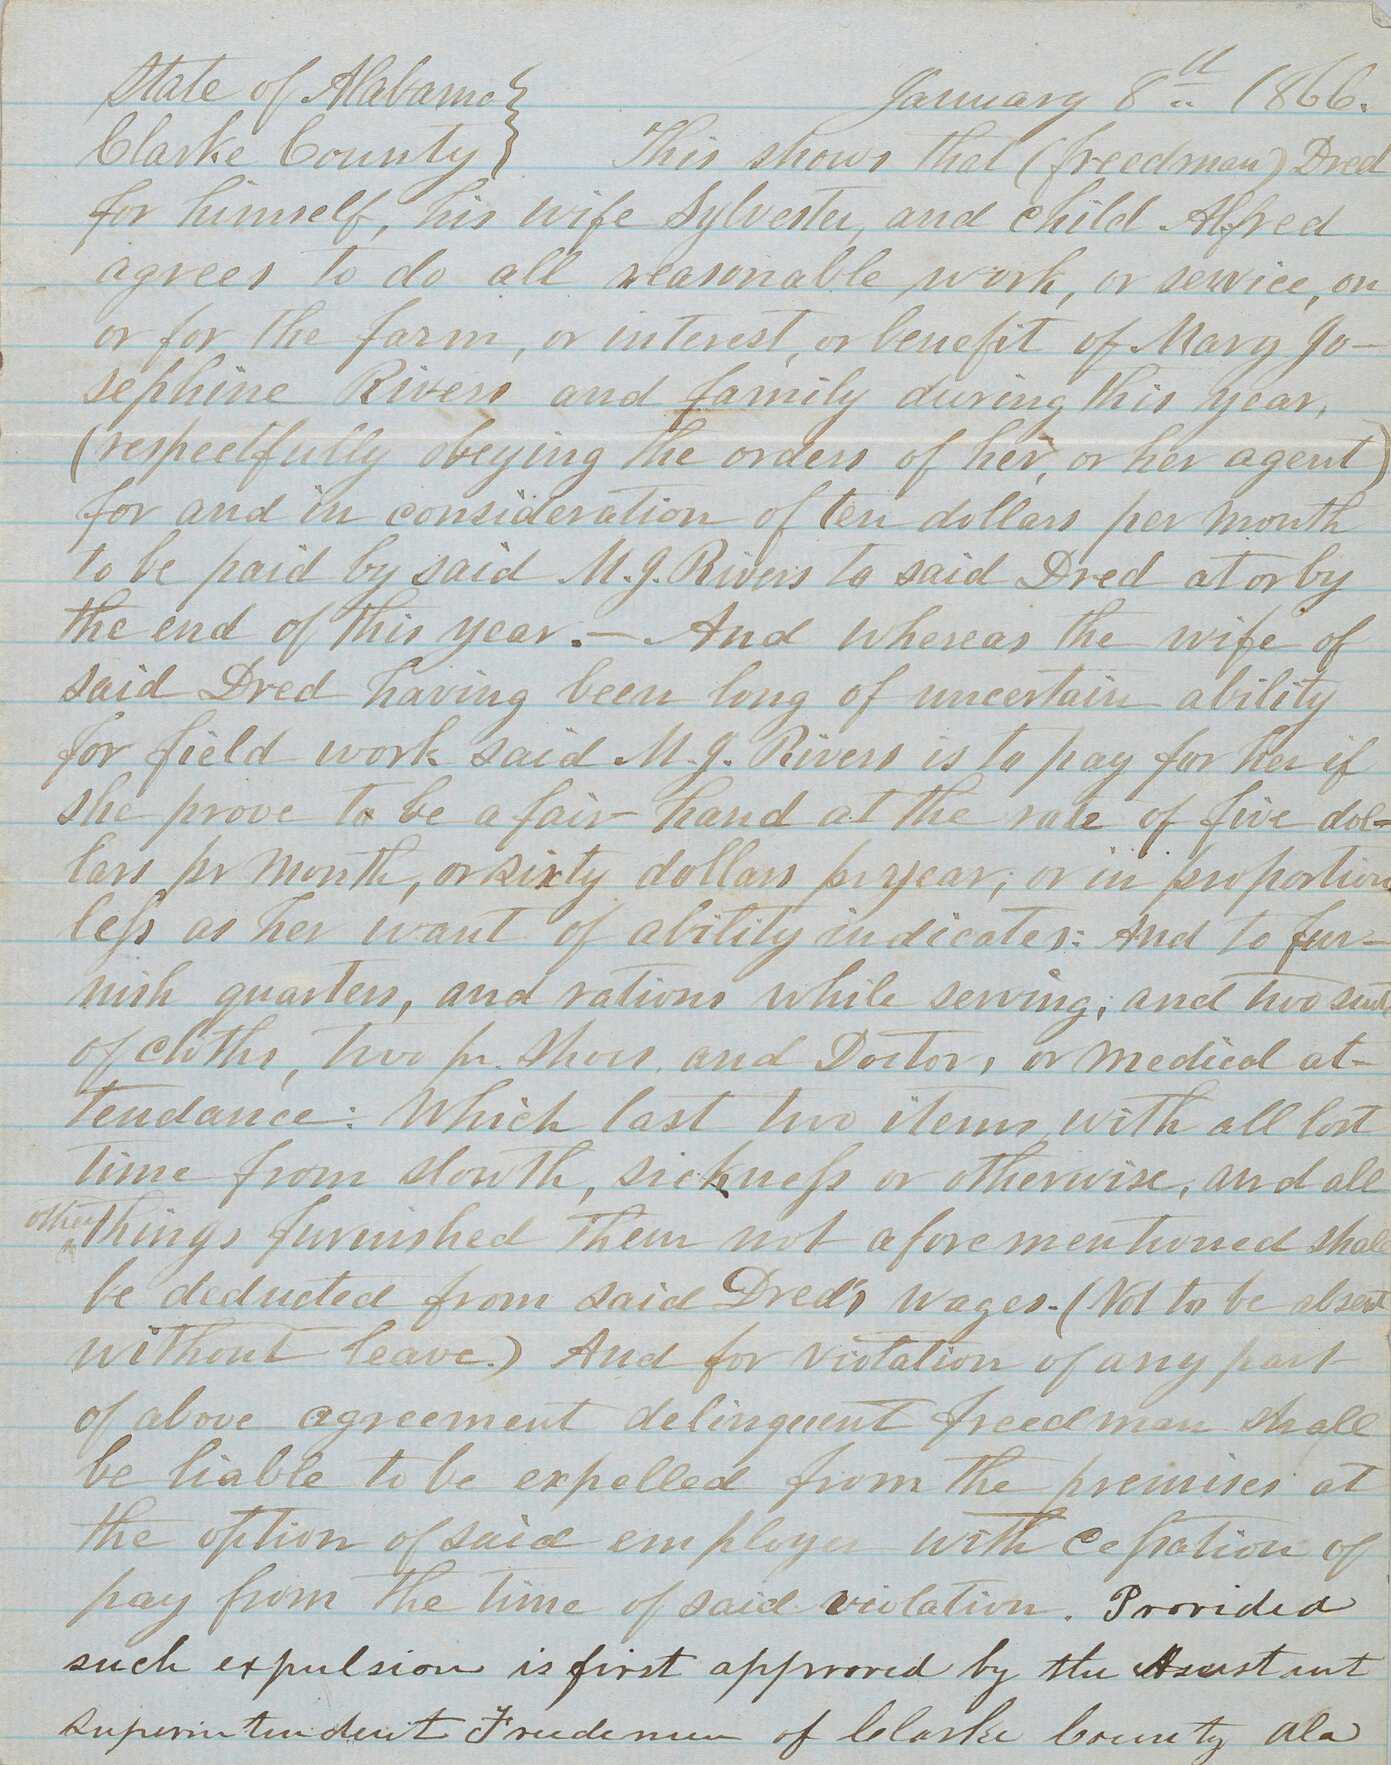 State of Alabama } January 8th 1866.
Clarke County } This shows that (freedman) Dred
for himself, his wife Sylvester, and child Alfred
agrees to do all reasonable work, or service, on
or for the farm, or interest, or benefit of Mary Jo-
sephine Rivers and family during this year,
(respectfully obeying the orders of her, or her agent)
for and in consideration of ten dollars per month
to be paid by said M. J. Rivers to said Dred at or by
the end of this year. — And whereas the wife of
said Dred having been long of uncertain ability
for field work said M. J. Rivers is to pay for her if
she prove to be a fair hand at the rate of five dol-
lars pr month, or sixty dollars pr year; or in proportion
less as her want of ability indicates: And to fur-
nish quarters, and rations while serving; and two suits
of cloths, two pr. shoes, and Doctor, or medical at-
tendance: Which last two items, with all lost
time from slowth, sickness or otherwise, and all
other things furnished them not aforementioned shall
be deducted from said Dred's wages. (Not to be absent
without leave.) And for violation of any part
of above agreement delinquent freedman shall
be liable to be expelled from the premises at
the option of said employer with cessation of
pay from the time of said violation. Provided
such expulsion is first approved by the Assistant
Superintendent Freedmen of Clarke County Ala